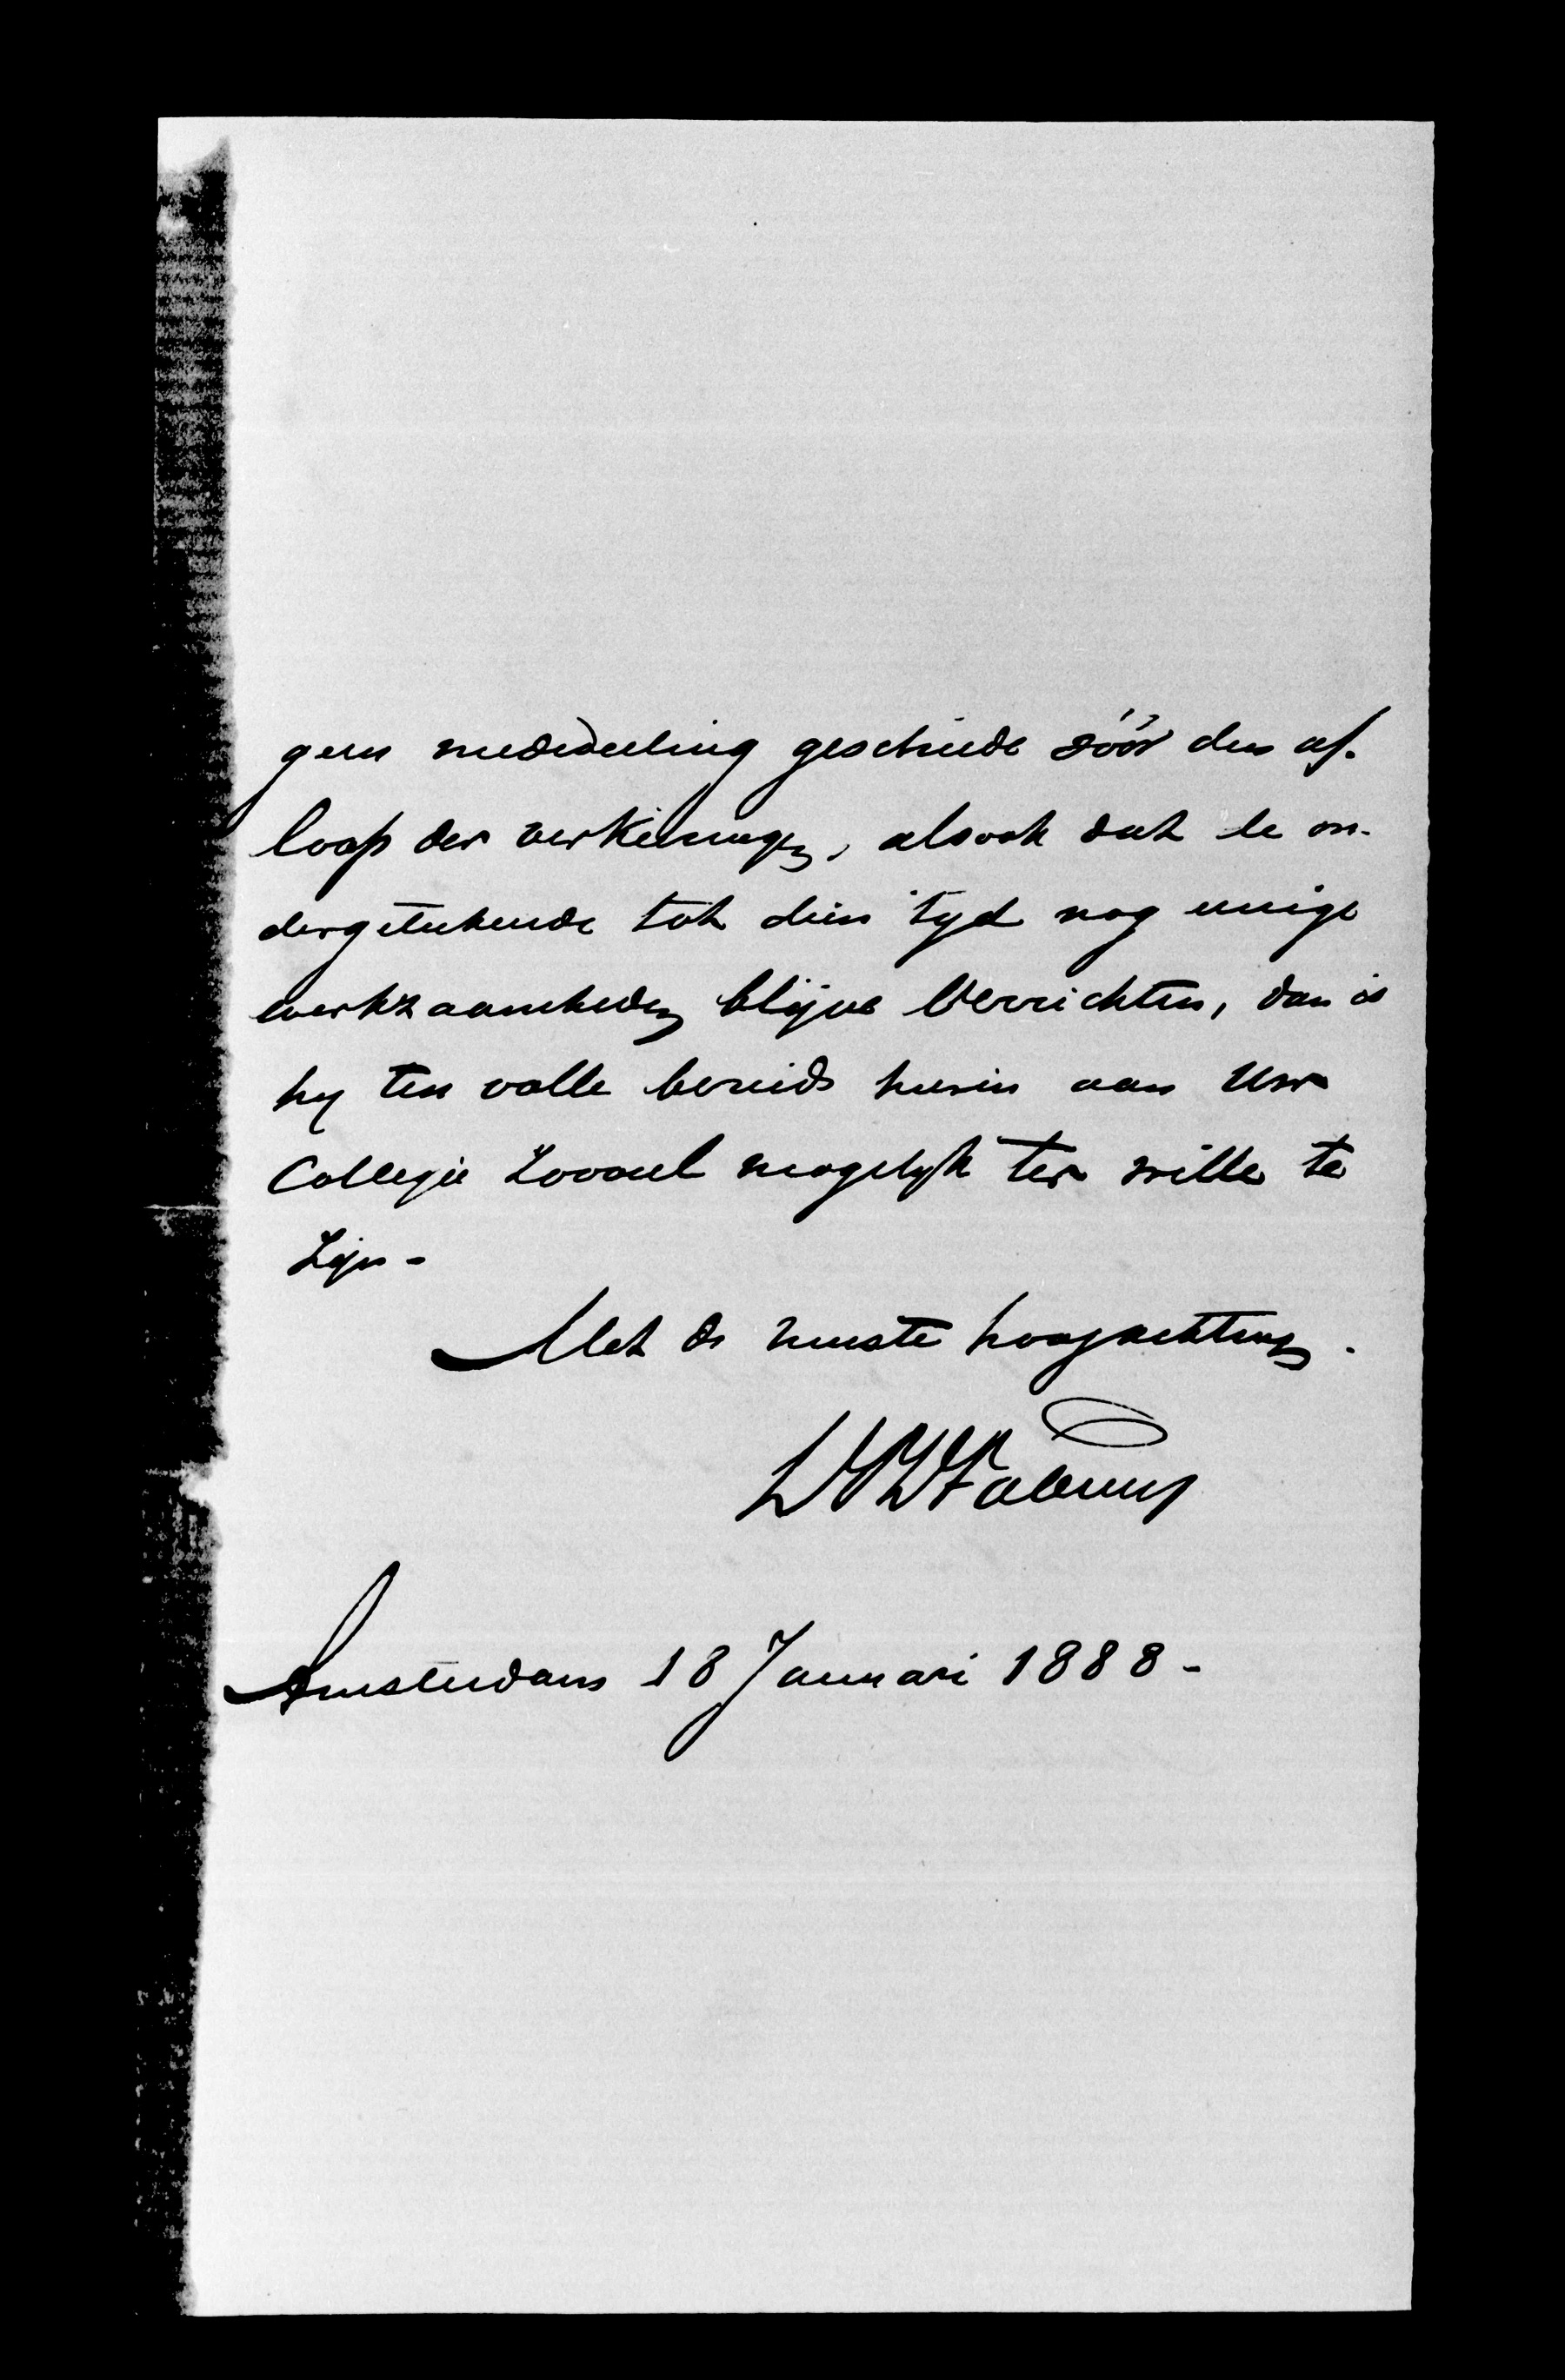 geen mededeeling geschiede vóór den af-
loop der verkiezingen, alsook dat de on-
dergeteekende tot dien tyd nog eenige
werkzaamheden blijve verrichten, dan is
hy ten volle bereid hierin aan Uw
Collegie zooveel mogelyk ter wille te
zijn -
Met de meeste hoogachting.
Amsterdam 18 Januari 1888 -